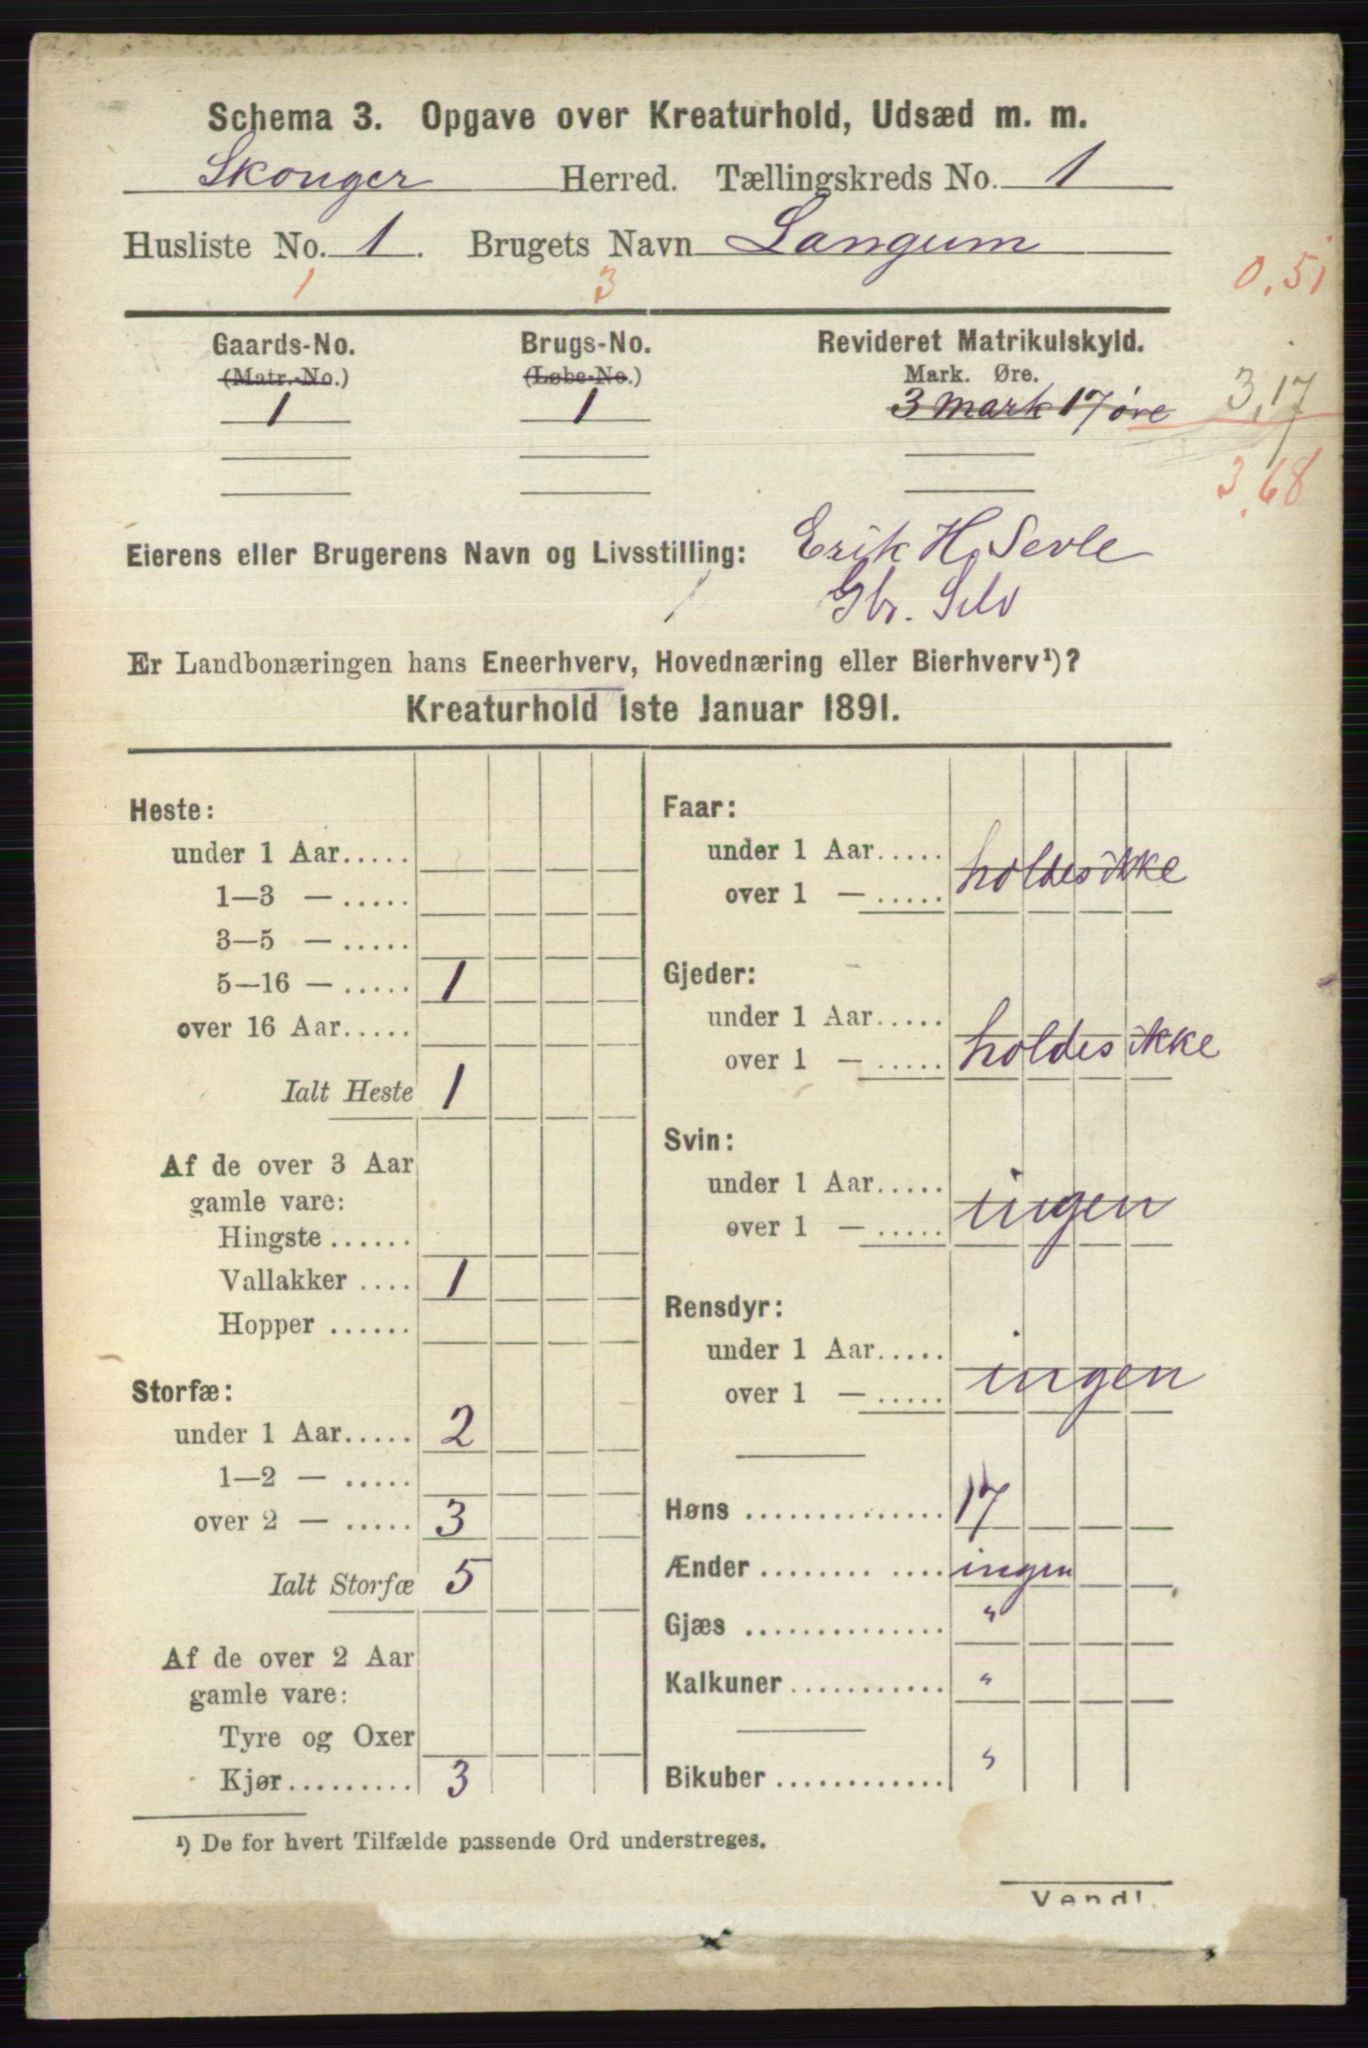 Schema 3. Opgave over Kreaturhold, Udsæd m. m.
Skouger Herred. Tællingskreds No. 1
Husliste No. 1. Brugets Navn Langum
1 3 0,51
Gaards-No. Brugs-No. Revideret Matrikulskyld.
(Matr.-No.) (Løbe-No.) Mark. Øre.
1 1 3 mark 17 øre 3,17
3,68
Eierens eller Brugerens Navn og Livsstilling: Erik H. Sevle
Gbr. Selv
Er Landbonæringen hans Eneerhverv, Hovednæring eller Bierhverv¹)?
Kreaturhold 1ste Januar 1891.
Heste:
under 1 Aar.....
1—3 — .....
3—5 — .....
5—16 — ..... 1
over 16 Aar.....
Ialt Heste 1
Af de over 3 Aar
gamle vare:
Hingste ......
Vallakker .... 1
Hopper ......
Storfæ:
under 1 Aar..... 2
1—2 — .....
over 2 — ..... 3
Ialt Storfæ 5
Af de over 2 Aar
gamle vare:
Tyre og Oxer
Kjør......... 3
Faar:
under 1 Aar.....
over 1 — ..... holdes ikke
Gjeder:
under 1 Aar.....
over 1 — ..... holdes ikke
Svin:
under 1 Aar.....
over 1 — ..... ingen
Rensdyr:
under 1 Aar.....
over 1 — ..... ingen
Høns .............. 17
Ænder ........ .... ingen
Gjæs .............. "
Kalkuner........... "
Bikuber ............ "
¹) De for hvert Tilfælde passende Ord understreges.
Vend!